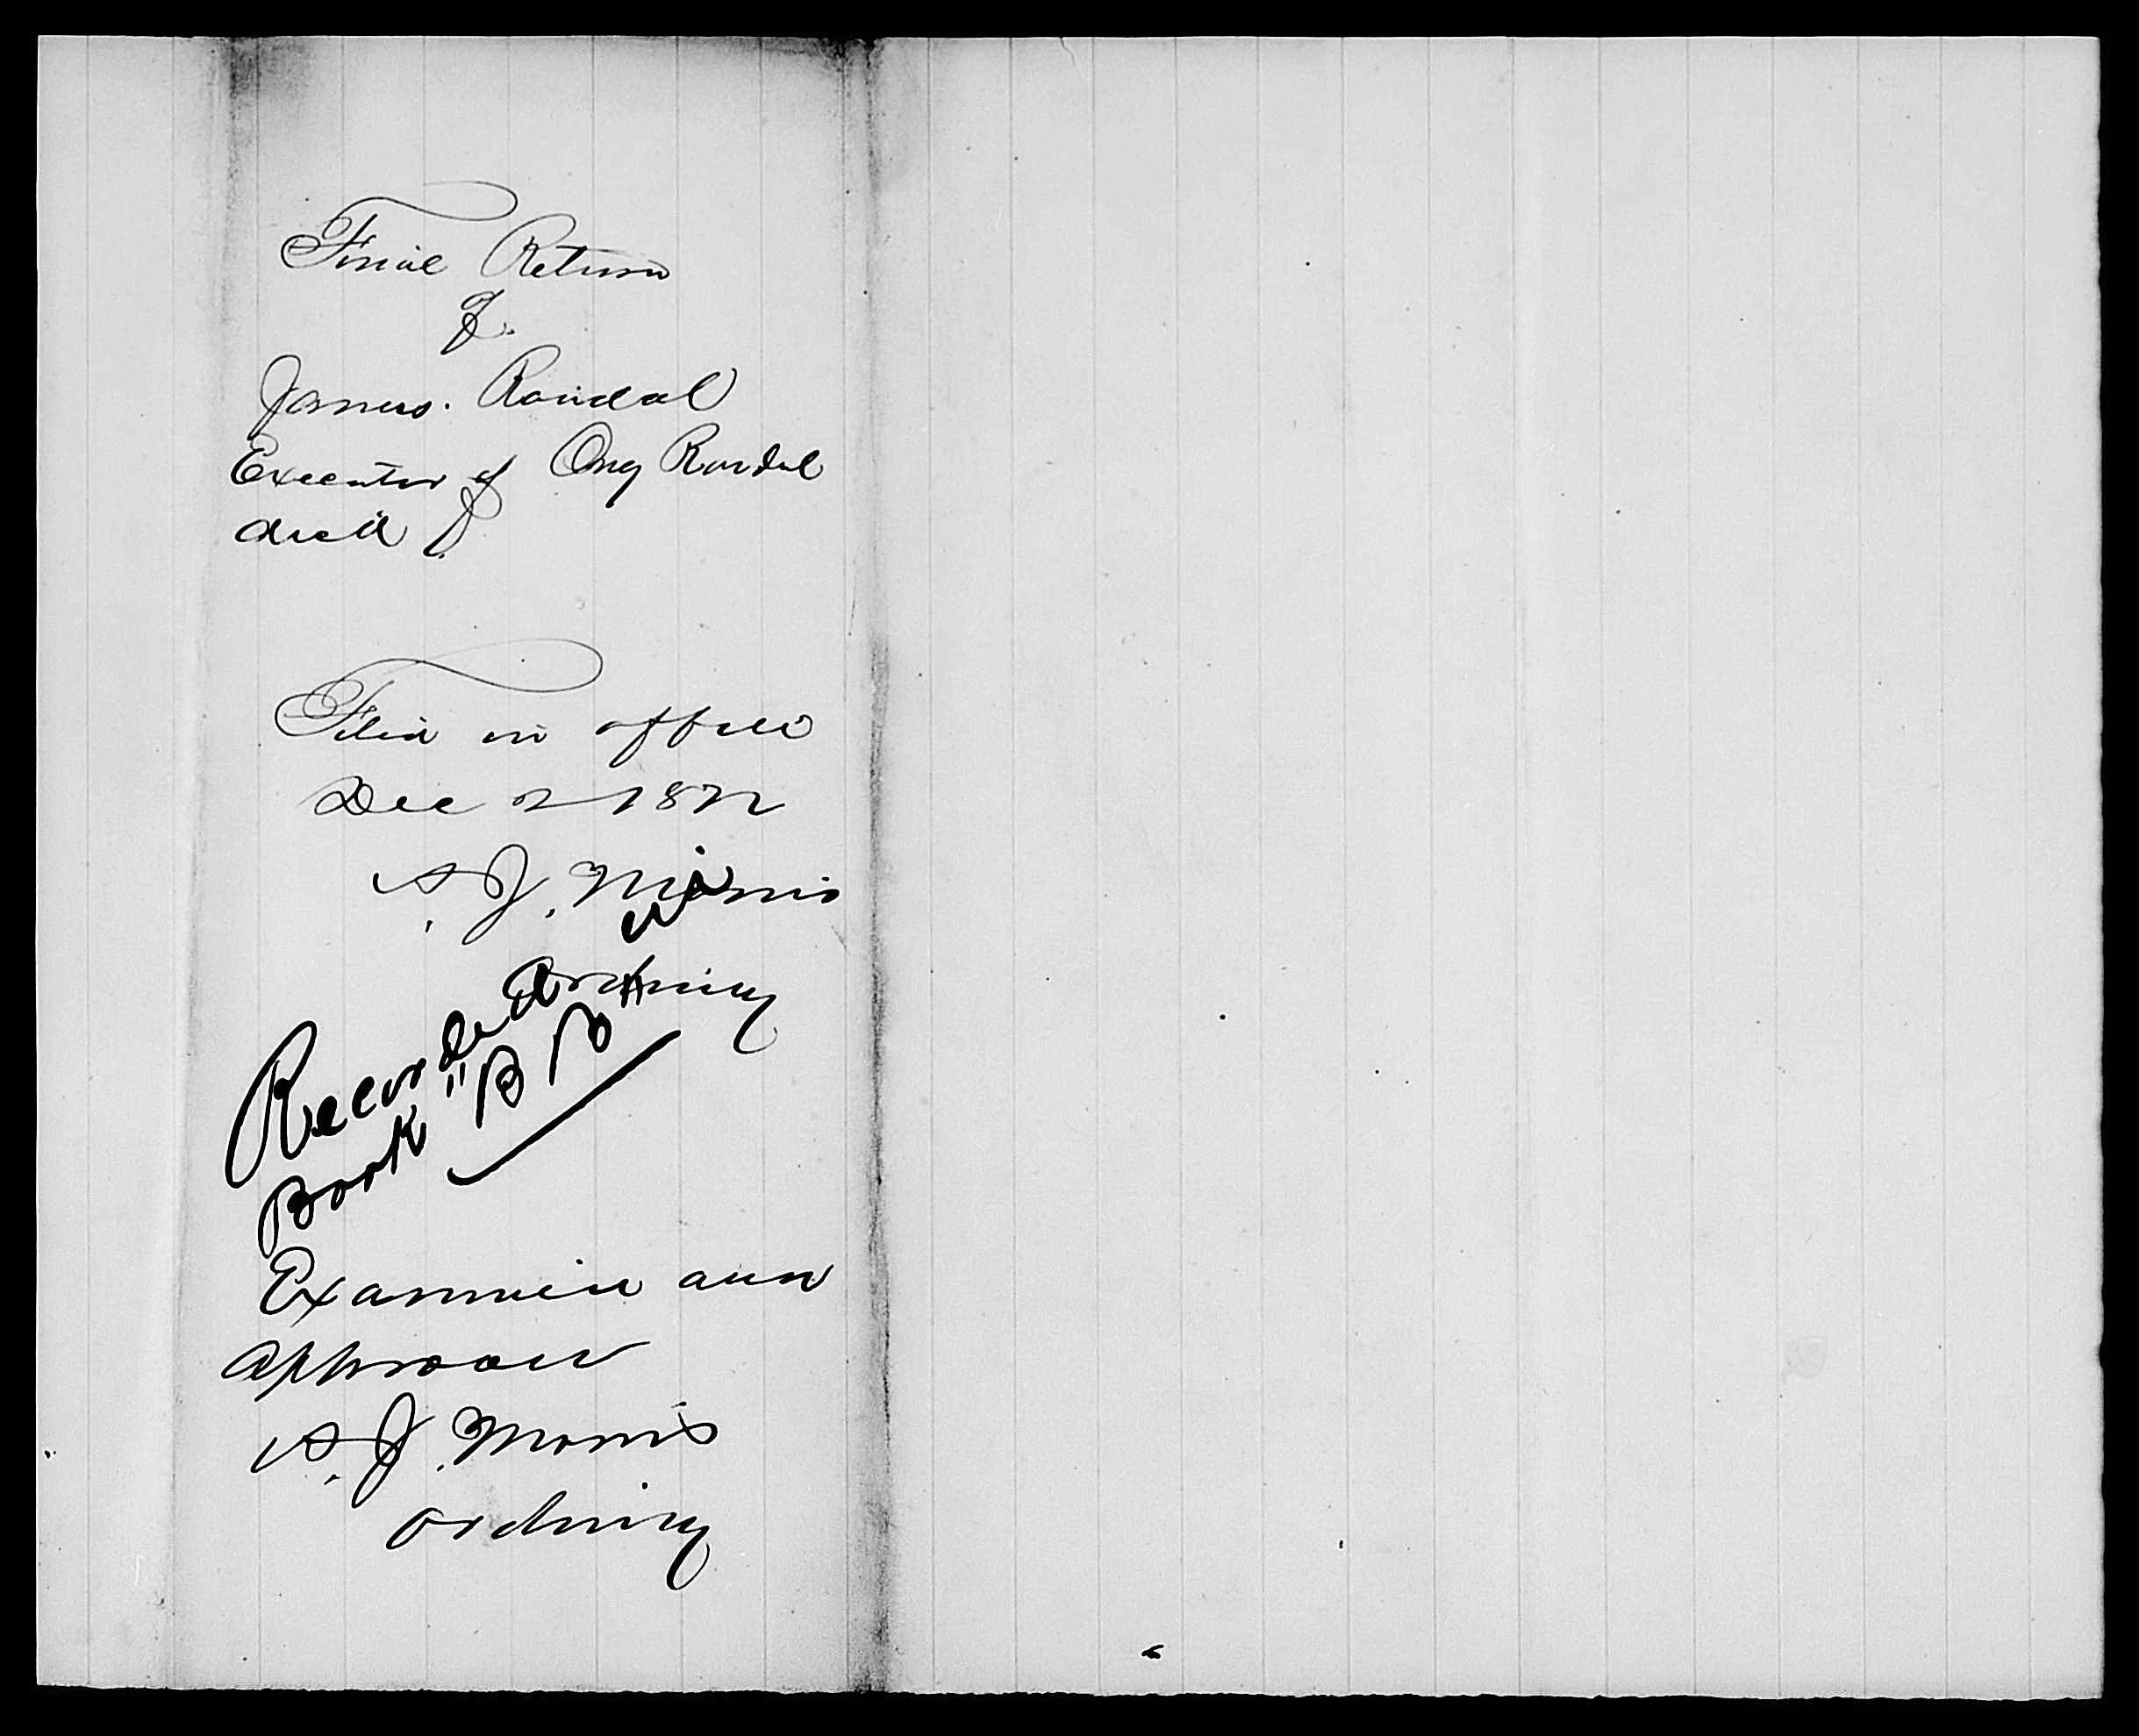 Final Return
of
James. Randal
Executor of Ong Randal
decd
Filed in office
Dec 2 1872
S. J. Morris
Ordinary
Recorded in
Book "B B"
Examined and
approved
S. J. Morris
ordinary